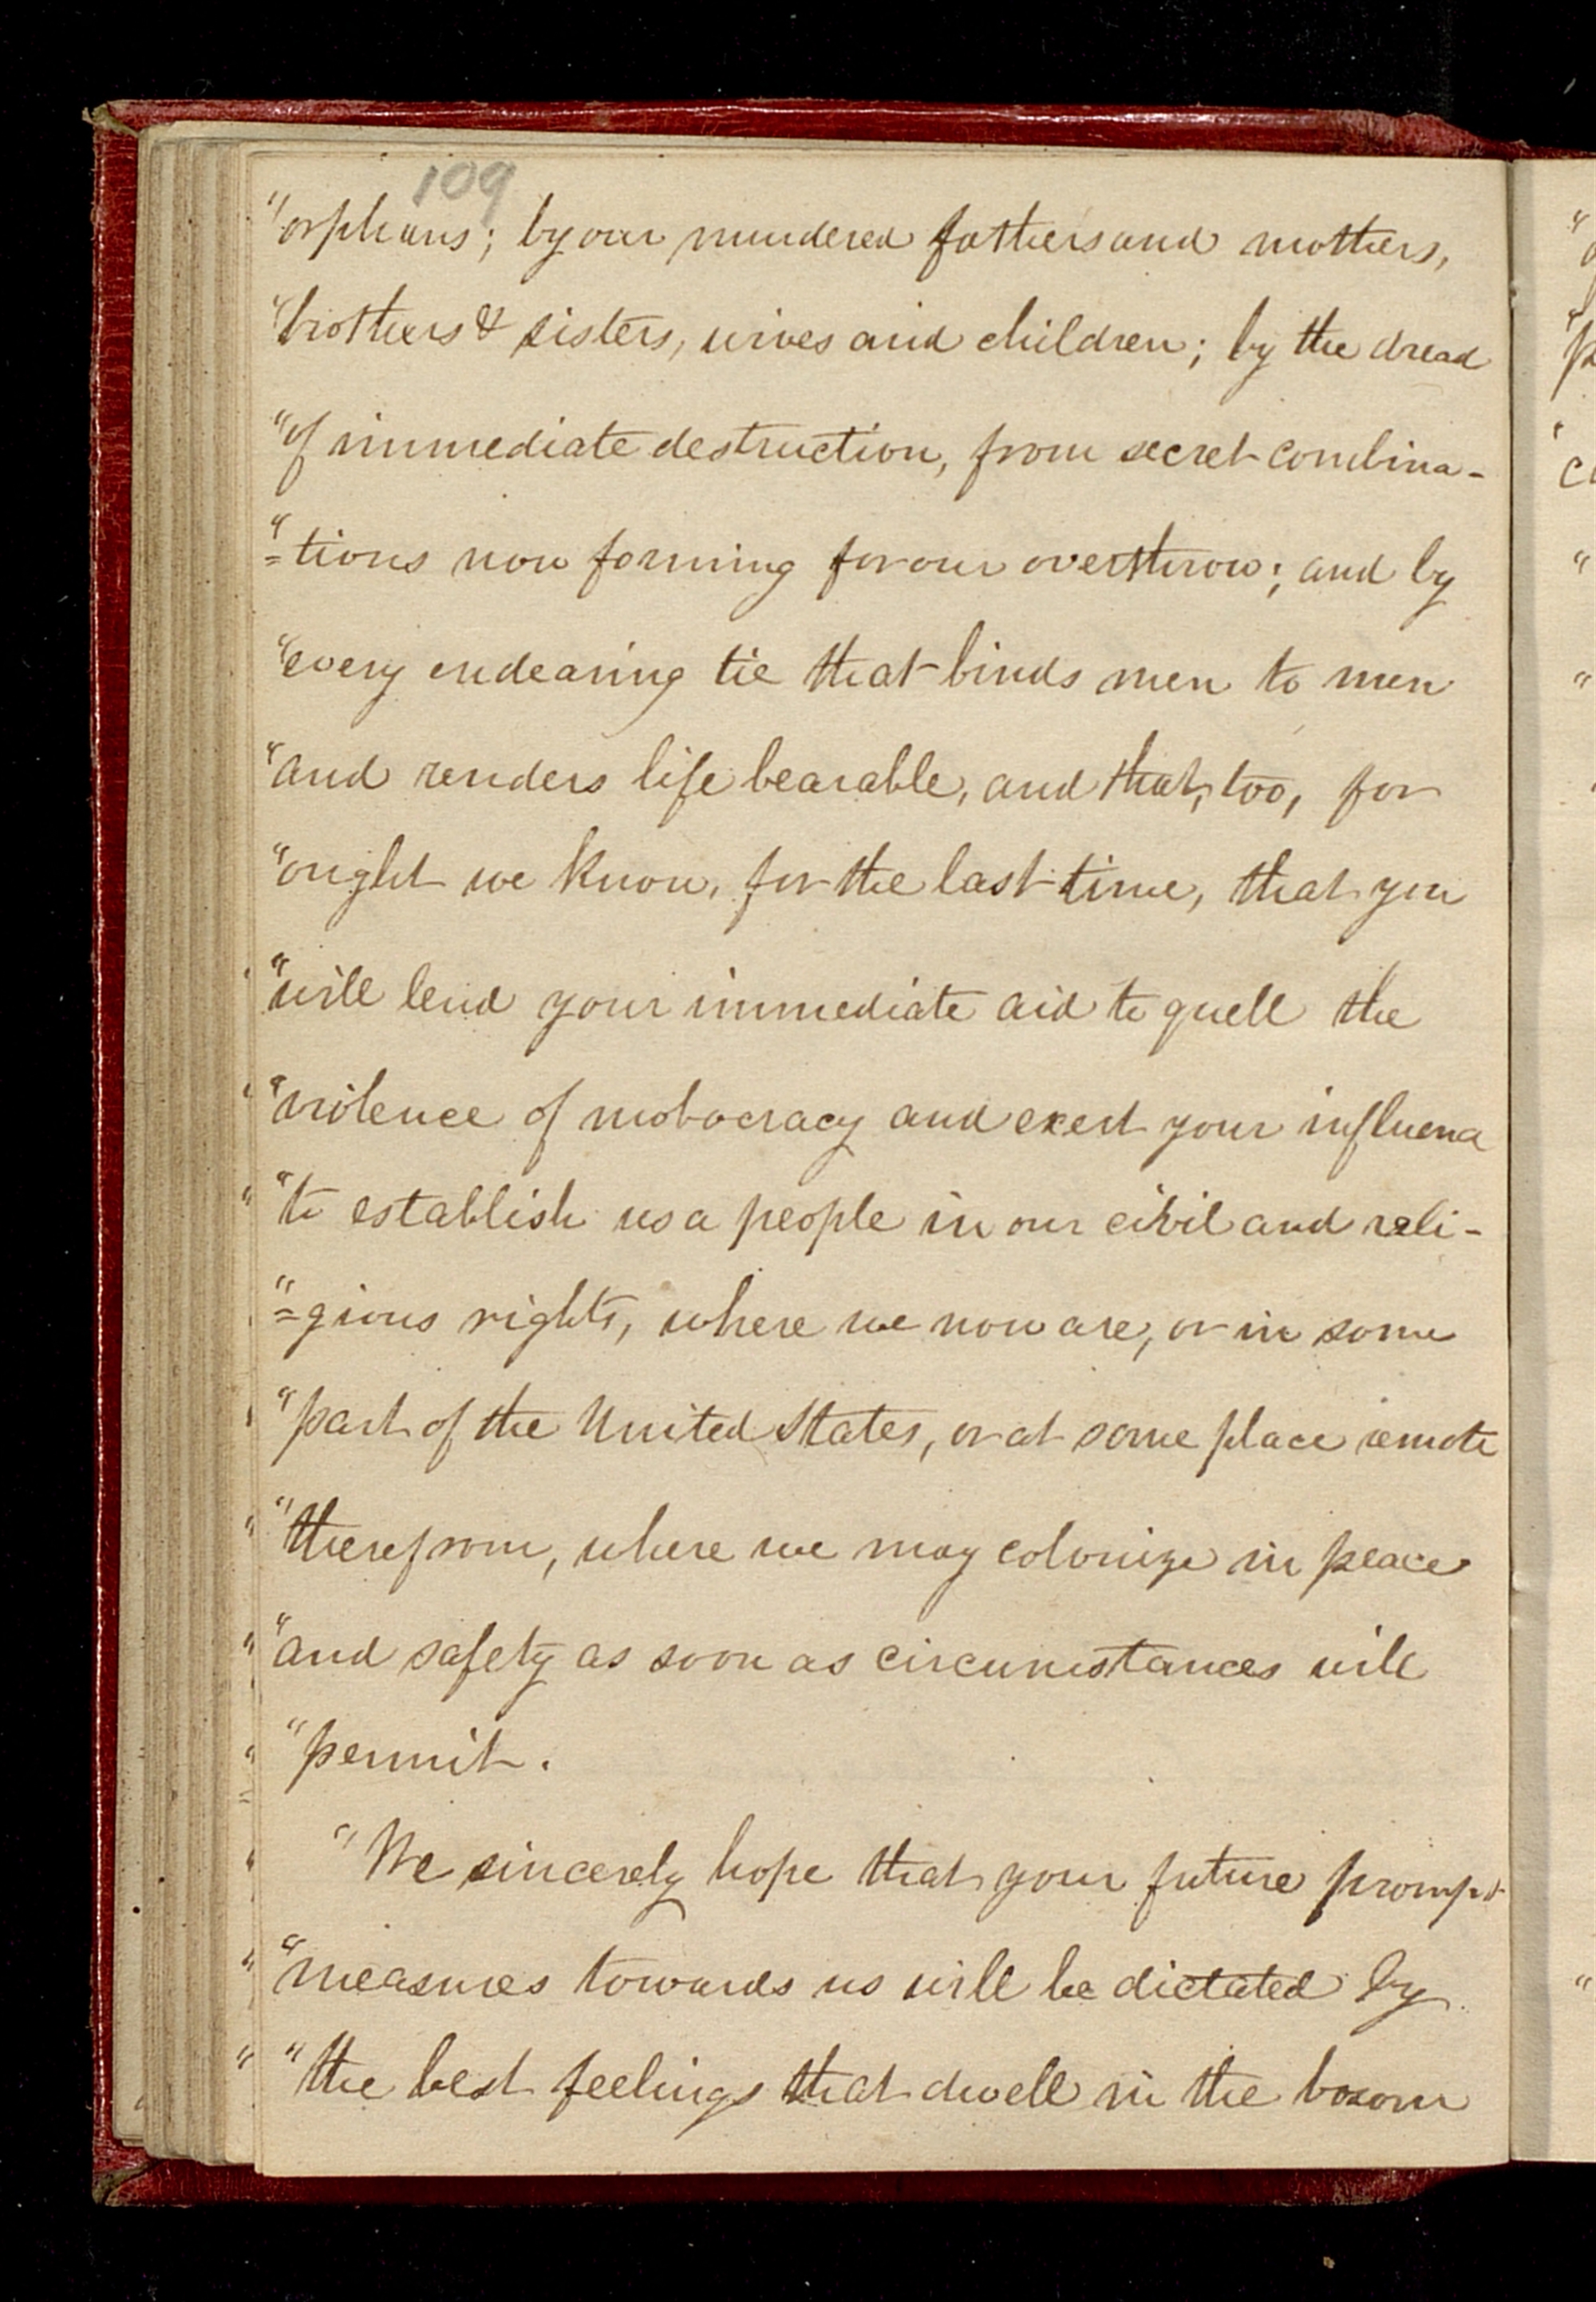 109
"orphans; by our murdered fathers and mothers,
"brothers & sisters, wives and children; by the dread
"of immediate destruction, from secret combina-
"=tions now forming for our overthrow; and by
"every endearing tie that binds men to men
"and renders life bearable, and that, too, for
"ought we know, for the last time, that you
"will lend your immediate aid to quell the
"violence of mobocracy and exert your influence
"to establish us a people in our civil and reli-
"=gious rights, where we now are, or in some
"part of the United States, or at some place remote
"therefrom, where we may colonize in peace
"and safety as soon as circumstances will
"permit.
"We sincerely hope that your future prompt
"measures towards us will be dictated by
"the best feelings that dwell in the bosom